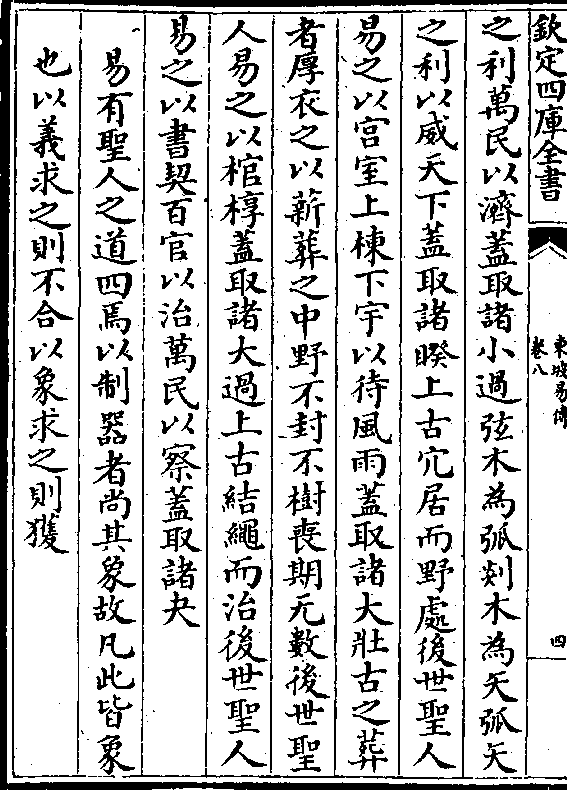 欽定四庫全書
東坡易傳
卷八
四
之利萬民以濟蓋取諸小過弦木為弧剡木為矢弧矢
之利以威天下蓋取諸睽上古穴居而野處後世聖人
易之以宫室上棟下宇以待風雨蓋取諸大壯古之葬
者厚衣之以薪葬之中野不封不樹喪期无數後世聖
人易之以棺椁蓋取諸大過上古結繩而治後世聖人
易之以書契百官以治萬民以察蓋取諸夬
易有聖人之道四焉以制器者尚其象故凡此皆象
也以義求之則不合以象求之則獲